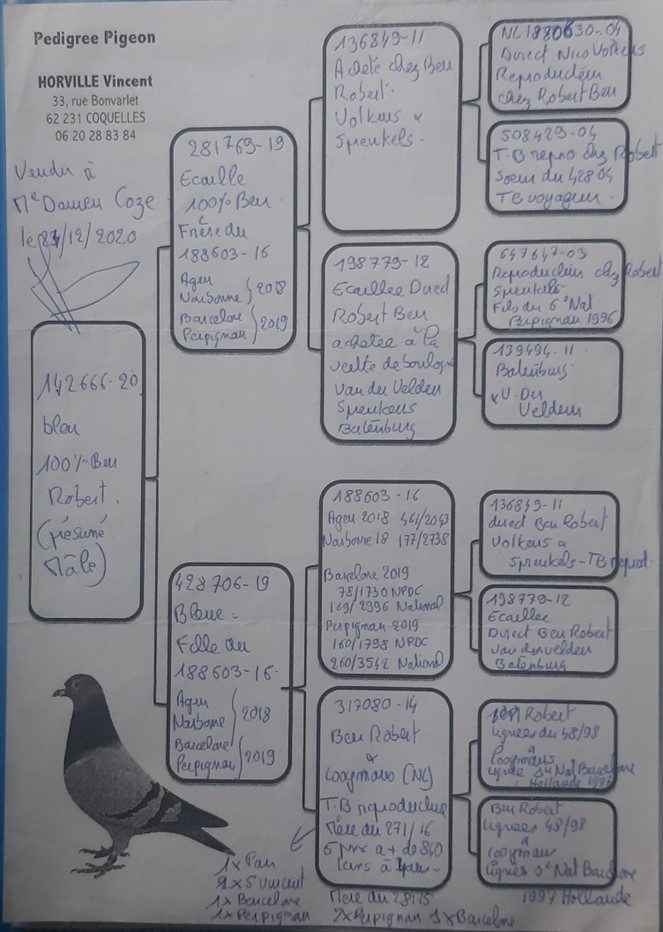 Pedigree Pigeon
HORVILLE Vincent
33, rue Bonvarlet
62 231 COQUELLES
06 20 28 83 84
Vendu à
Mr Damien Coze
le /12/2020
142666-20
bleu
100% Ben
Robert.
(présumé
Mâle)
281769-19
Ecaille
100% Ben.
Frère du
188603-16
Agen
Narbonne } 2018
Barcelone
Perpignan } 2019
428706-19
Bleue-
Fille du
188603-16-
Agen
Narbonne } 2018
Barcelone
Perpignan } 2019
136849-11
Acheté chez Ben
Robert.
Volkens x
Spenkels-
198779-12
Ecaillee Direct
Robert Ben
achetée à la
vente de boulogne
Van der Velden
Spenkens
Batenburg
188603-16
Agen 2018 461/2043
Narbonne 18 177/2738
Barcelone 2019
78/1730 NPDC
169/2996 National
Perpignan 2019
160/1798 NPDC
260/3542 National
317080-14
Ben Robert
x
Looymans (NL)
T.B reproductrice
Mère du 271/16
6 prix a + de 840
kms à
NL 1880630-04
Direct Nico Volkens
Reproducteur
chez Robert Ben
508429-04
T.B repro chez Robert
Soeur du 428 04
TB voyageur.
647647-03
Reproducteur chez Robert
Spenkels
Fils du 6° Nat
Perpignan 1996
139494-11
Batenburg
x V. Der
Velden
136849-11
direct Ben Robert
Volkens x
Spenkels-TB reprod.
198779-12
Ecaillee
Direct Ben Robert
van der velden
Batenburg
Robert
lignées du 48/98
x
Looymans
lignée Nat Barcelone
Hollande
Ben Robert
lignées 48/98
x
Looymans
lignées Nat Barcelone
1997 Hollande
1 x Pau
2 x St Vincent
1 x Barcelone
1 x Perpignan
Mère du
2x Perpignan 1x Barcelone